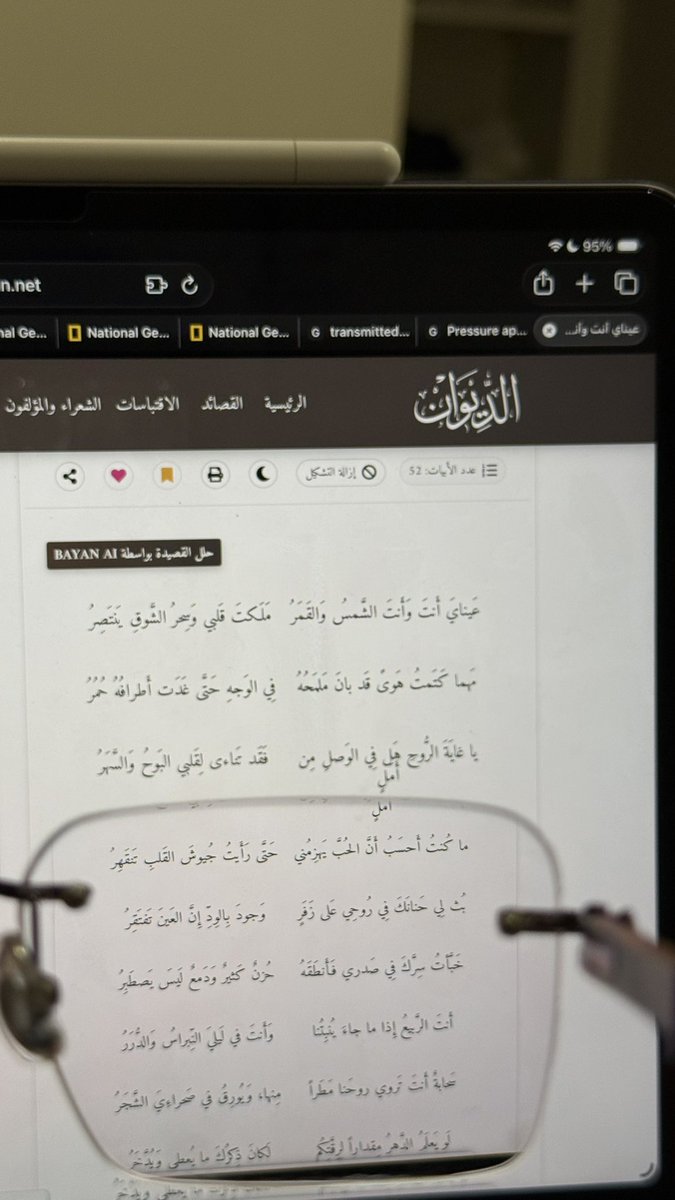 95%
n.net
nal Ge... National Ge... National Ge... transmitted... Pressure ap... عيناي أنت وأنـ...
الدِّيوَان الرئيسية القصائد الاقتباسات الشعراء والمؤلفون
عدد الأبيات: 52 إزالة التشكيل
حلل القصيدة بواسطة BAYAN AI
عَينايَ أَنتَ وَأَنتَ الشَّمسُ وَالقَمَرُ مَلَكتَ قَلبي وَسِحرُ الشَّوقِ يَنتَصِرُ
مَهما كَتَمتُ هَوىً قَد بانَ مَلمَحُهُ في الوَجهِ حَتَّى غَدَت أَطرافُهُ حُمُرُ
يا غايَةَ الرُّوحِ هَل في الوَصلِ مِن أَملٍ فَقَد تَناءى لِقَلبي البَوحُ وَالسَّهَرُ
أملٍ
ما كُنتُ أَحسَبُ أَنَّ الحُبَّ يَهزِمُني حَتَّى رَأَيتُ جُيوشَ القَلبِ تَنقَهِرُ
بُث لي حَنانَكَ في رُوحي عَلى زَفَرٍ وَجودَ بِالوِدِّ إِنَّ العَينَ تَفتَقِرُ
خَبَّأتُ سِرَّكَ في صَدري فَأَنطَقَهُ حُزنٌ كَثيرٌ وَدَمعٌ لَيسَ يَصطَبِرُ
أَنتَ الرَّبيعُ إِذا ما جاءَ يُنبِتُنا وَأَنتَ في لَيلِيَ النِّبراسُ وَالدُّرَرُ
سَحابةٌ أَنتَ تَروي روحَنا مَطَراً مِنها، وَيُورِقُ في صَحراءِيَ الشَّجَرُ
لَو يَعلَمُ الدَّهرُ مِقداراً لِرِقَّتِكُم لَكانَ ذِكرُكَ ما يُعطى وَيُدَّخَرُ